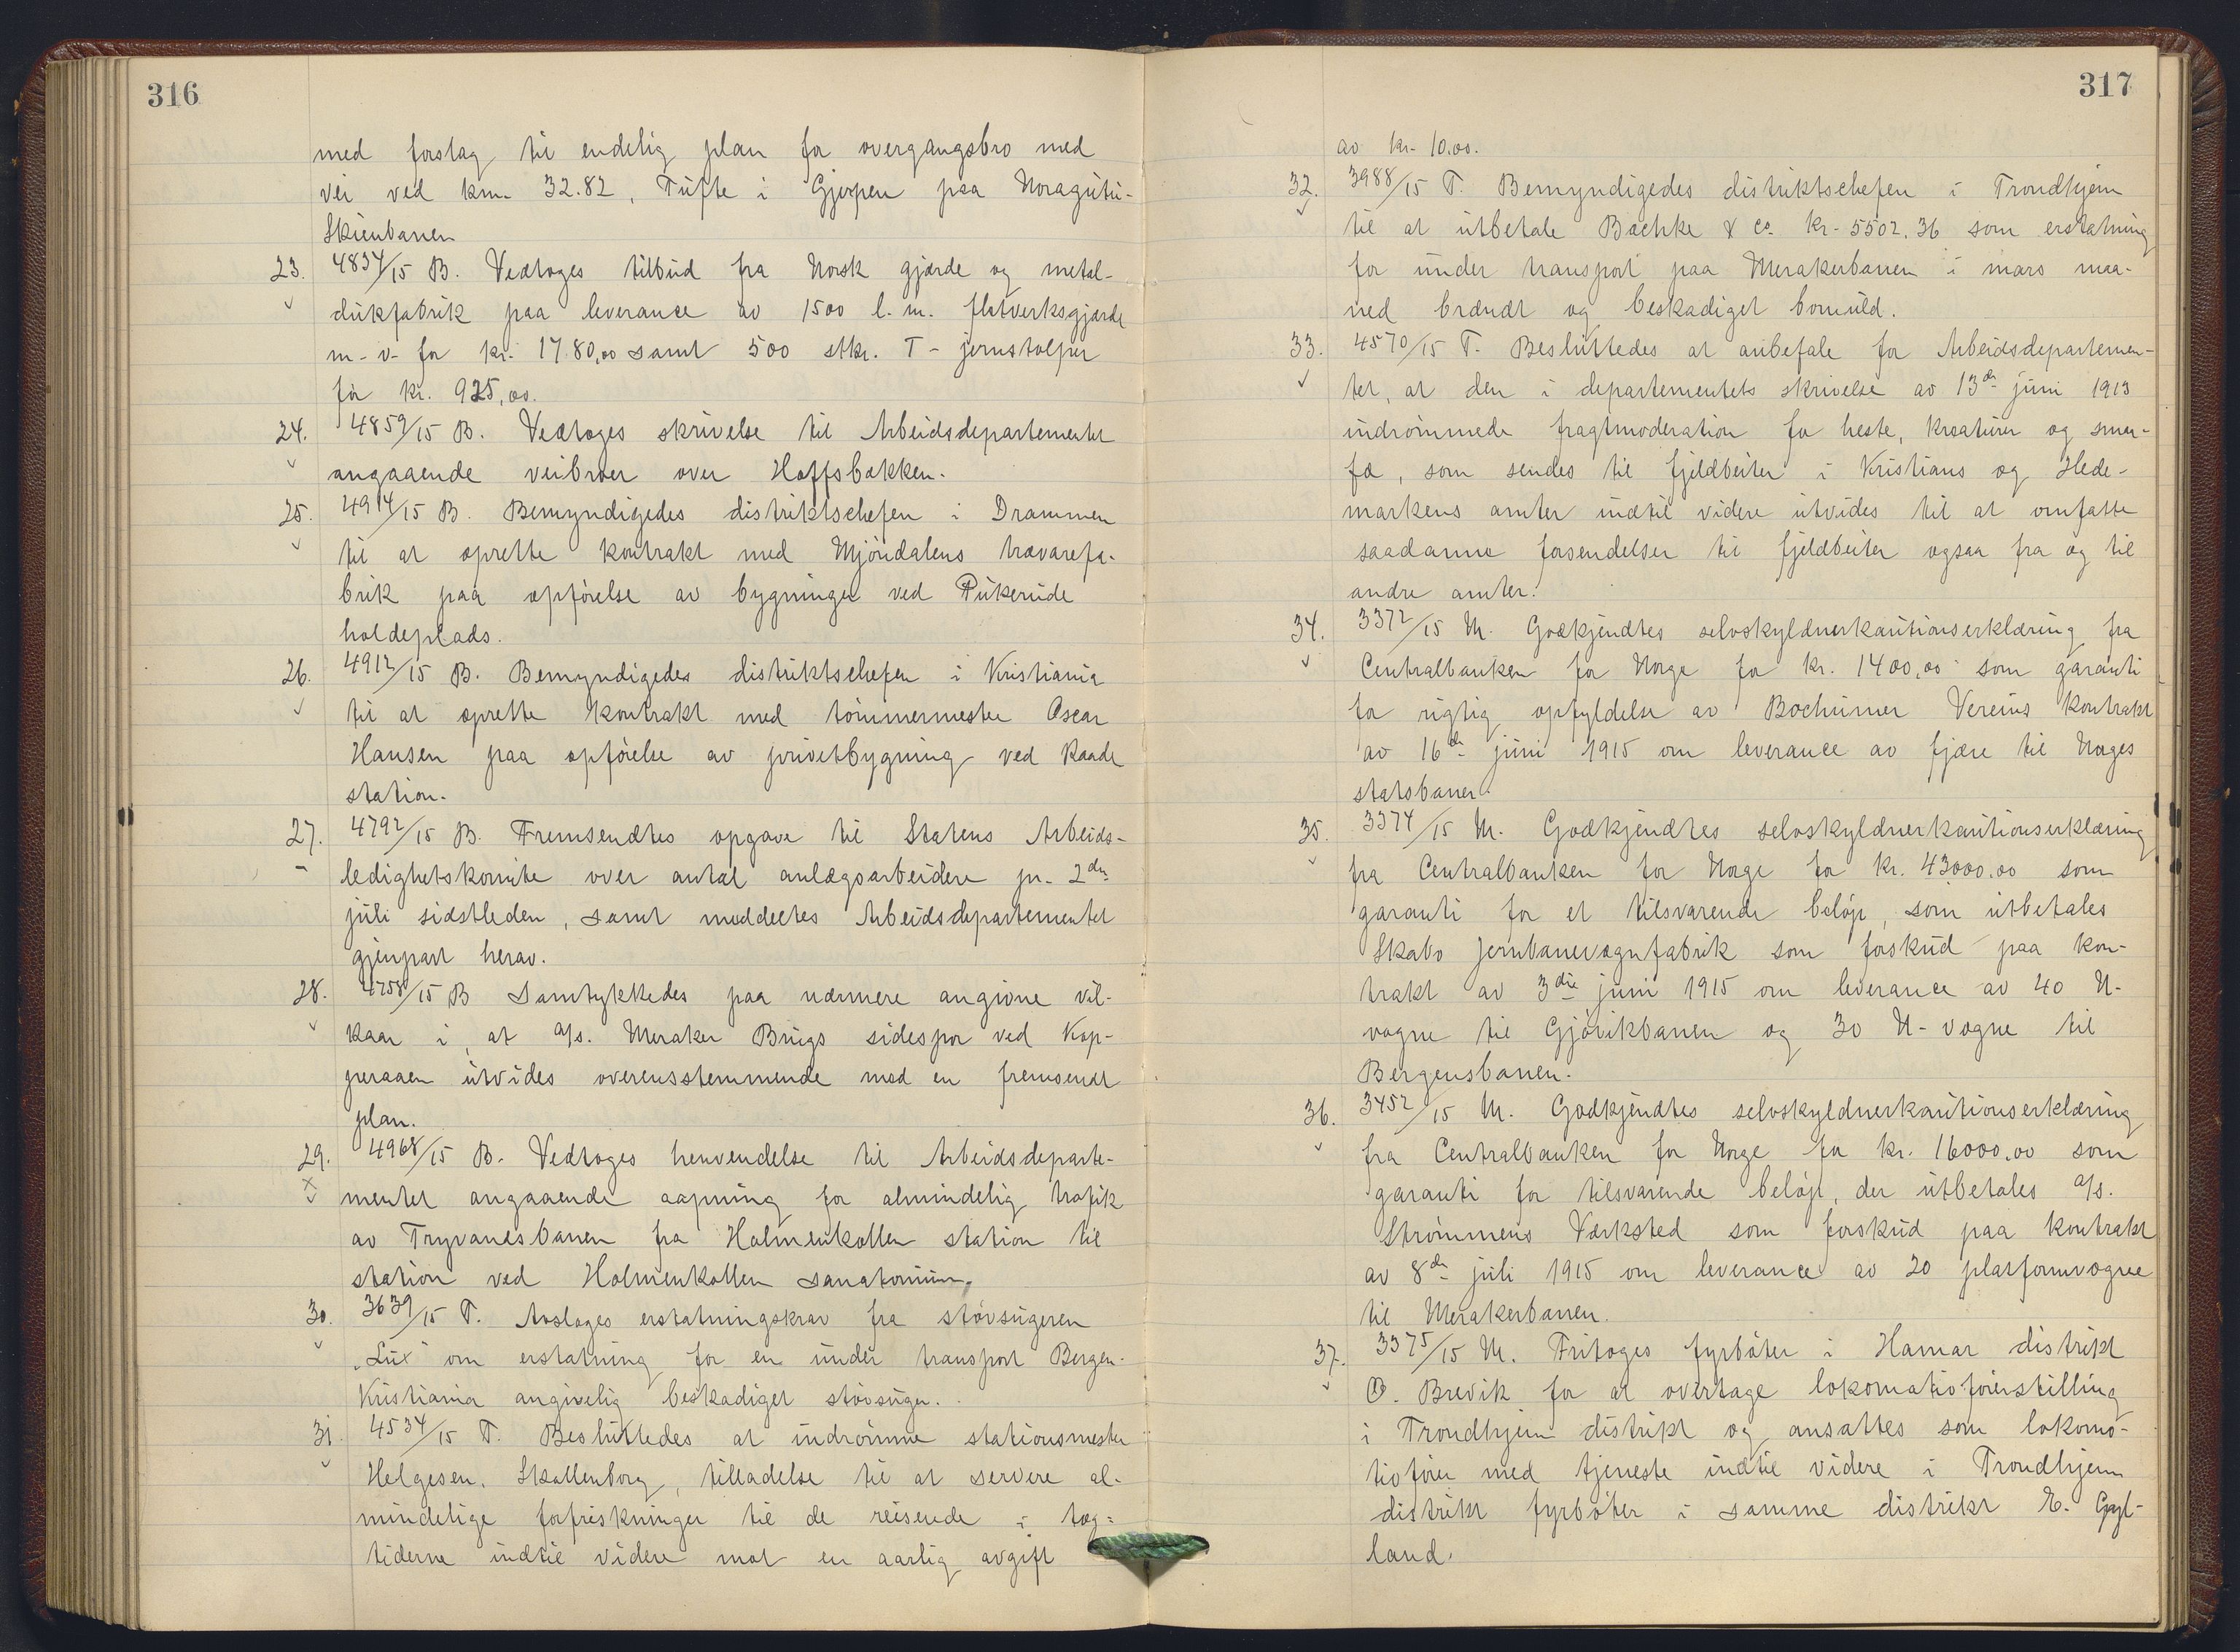 316
med forslag til endelig plan for overgangsbro med
vei ved km. 32.82, Tufte i Gjerpen paa Noragutu-
Skienbanen
23. 4834/15 B. Vedtoges tilbud fra Norsk gjærde og metal-
dukfabrik paa leverance av 1500 l. m. fletverksgjærde
m. v. for kr. 1780,00 samt 500 stkr. T-jernstolper
for kr. 925,00.
24. 4859/15 B. Vedtoges skrivelse til Arbeidsdepartementet
angaaende veibroer over Hoffsbakken.
25. 4914/15 B. Bemyndigedes distriktschefen i Drammen
til at oprette kontrakt med Mjöndalens trævarefa-
brik paa opförelse av bygninger ved Pukerude
holdeplads.
26. 4912/15 B. Bemyndigedes distriktschefen i Kristiania
til at oprette kontrakt med tömmermester Oscar
Hansen paa opförelse av privetbygning ved Raade
station.
27. 4792/15 B. Fremsendtes opgave til Statens Arbeids-
ledighetskomite over antal anlægsarbeidere pr. 2den
juli sidstleden, samt meddeltes Arbeidsdepartementet
gjenpart herav.
28. 4758/15 B Samtykkedes paa nærmere angivne vil-
kaar i, at A/s. Meraker Brugs sidespor ved Kop-
peraaen utvides overensstemmende med en fremsendt
plan.
29. 4968/15 B. Vedtoges henvendelse til Arbeidsdeparte-
mentet angaaende aapning for almindelig trafik
av Tryvandsbanen fra Holmenkollen station til
station ved Holmenkollen sanatorium.
30. 3639/15 T. Avsloges erstatningskrav fra stövsugeren
"Lux" om erstatning for en under transport Bergen-
Kristiania angivelig beskadiget stövsuger.
31. 4534/15 T. Besluttedes at indrömme stationsmester
Helgesen, Skollenborg, tilladelse til at servere al-
mindelige forfriskninger til de reisende i tog-
tiderne indtil videre mot en aarlig avgift
317
av kr. 10.00.
32. 3988/15 T. Bemyndigedes distriktschefen i Trondhjem
til at utbetale Bachke & Co. kr. 5502.36 som erstatning
for under transport paa Merakerbanen i mars maa-
ned brændt og beskadiget bomuld.
33. 4570/15 T. Besluttedes at anbefale for Arbeidsdepartemen-
tet, at den i departementets skrivelse av 13de juni 1913
indrömmede fragtmoderation for heste, kreaturer og smaa-
fæ, som sendes til fjeldbeiter i Kristians og Hede-
markens amter indtil videre utvides til at omfatte
saadanne forsendelser til fjeldbeiter ogsaa fra og til
andre amter.
34. 3372/15 M. Godkjendtes selvskyldnerkautionserklæring fra
Centralbanken for Norge for kr. 1400,00 som garanti
for rigtig opfyldelse av Bochumer Vereins kontrakt
av 16de juni 1915 om leverance av fjære til Norges
statsbaner.
35. 3374/15 M. Godkjendtes selvskyldnerkautionserklæring
fra Centralbanken for Norge for kr. 43000.00 som
garanti for et tilsvarende belöp, som utbetales
Skabo Jernbanevognfabrik som forskud paa kon-
trakt av 3die juni 1915 om leverance av 40 N-
vogne til Gjövikbanen og 30 N-vogne til
Bergensbanen.
36. 3452/15 M. Godkjendtes selvskyldnerkautionserklæring
fra Centralbanken for Norge for kr. 16000.00 som
garanti for tilsvarende belöp, der utbetales A/s.
Strömmens Værksted som forskud paa kontrakt
av 8de juli 1915 om leverance av 20 platformvogne
til Merakerbanen.
37. 3375/15 M. Fritoges fyrböter i Hamar distrikt
O. Brevik for at overtage lokomotivförerstilling
i Trondhjem distrikt og ansattes som lokomo-
tivförer med tjeneste indtil videre i Trondhjem
distrikt fyrböter i samme distrikt E. Gyl-
land.